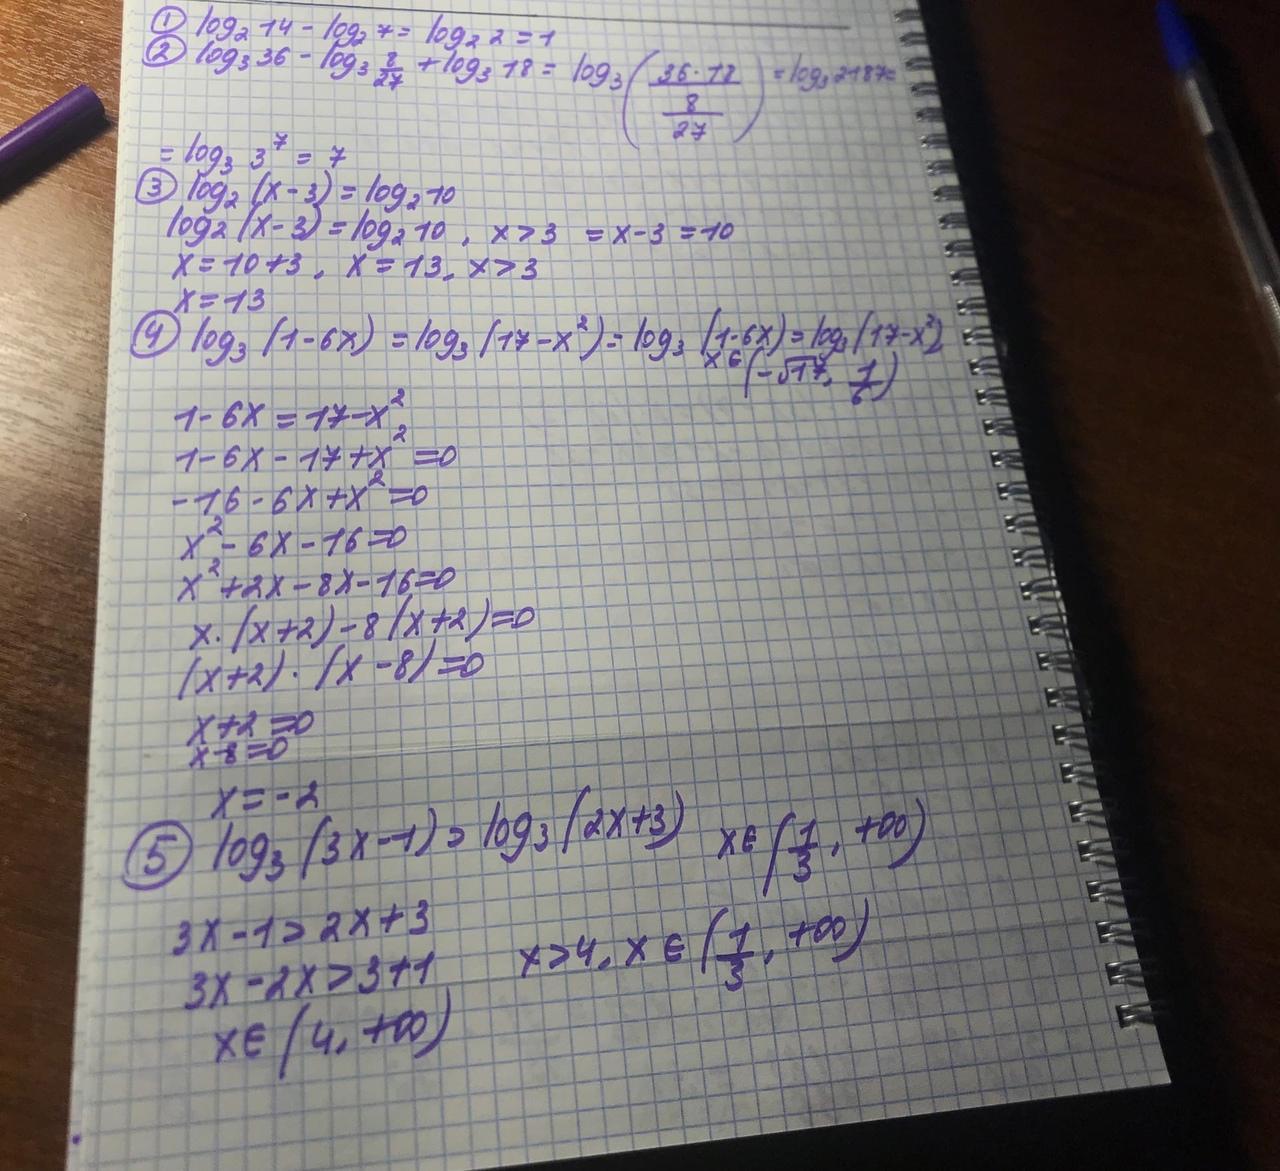 ① log₂ 14 - log₂ 7 = log₂ 2 = 1
② log₃ 36 - log₃ 8/27 + log₃ 18 = log₃ ((36·18)/(8/27)) = log₃ 2187 =
= log₃ 3⁷ = 7
③ log₂ (x-3) = log₂ 10
log₂ (x-3) = log₂ 10, x>3 = x-3 = 10
x = 10+3, x = 13, x>3
x = 13
④ log₃ (1-6x) = log₃ (17-x²) = log₃ (1-6x) = log₃ (17-x²)
x∈ (-√17, 1/6)
1-6x = 17-x²
1-6x-17+x² = 0
-16-6x+x² = 0
x²-6x-16=0
x²+2x-8x-16=0
x·(x+2)-8(x+2)=0
(x+2)·(x-8)=0
x+2=0
x-8=0
x=-2
⑤ log₃ (3x-1) > log₃ (2x+3) x∈ (1/3, +∞)
3x-1>2x+3
3x-2x>3+1 x>4, x∈ (1/3, +∞)
x∈ (4, +∞)